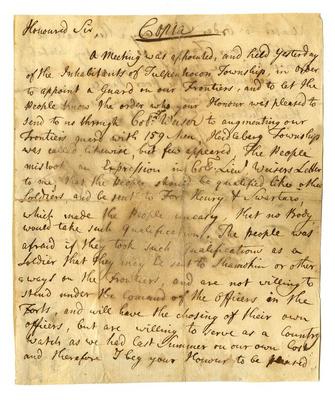 Honoured Sir Copia
A Meeting was appointed, and held Yesterday
of the Inhabitants of Tulpenhocon Township, in order
to appoint a Guard on our Frontiers, and to let the
People know the order who your Honour was pleased to
send to us through Colo. Weisor to augmenting our
Frontiers guard with 159 Men, Heidleberg Township
was called likewise, but few appeared. The People
mistook an Expression in Colo. Weisers Letter
to me, that the People should be qualified like other
Soldiers and be sent to Fort Henry & Swartaro,
which made the People uneasy, that no Body
would take such Qualifications. The people was
afraid if they took such Qualifications as a
Soldier that they may be sent to Shamokin or other
ways on the Frontiers, and are not willing to
stand under the Comand of the Officers in the
Forts, and will have the chosing of their own
officers, but are willing to serve as a Country
watch as we had last Summer on our own Cost
and therefore I beg your Honour to be